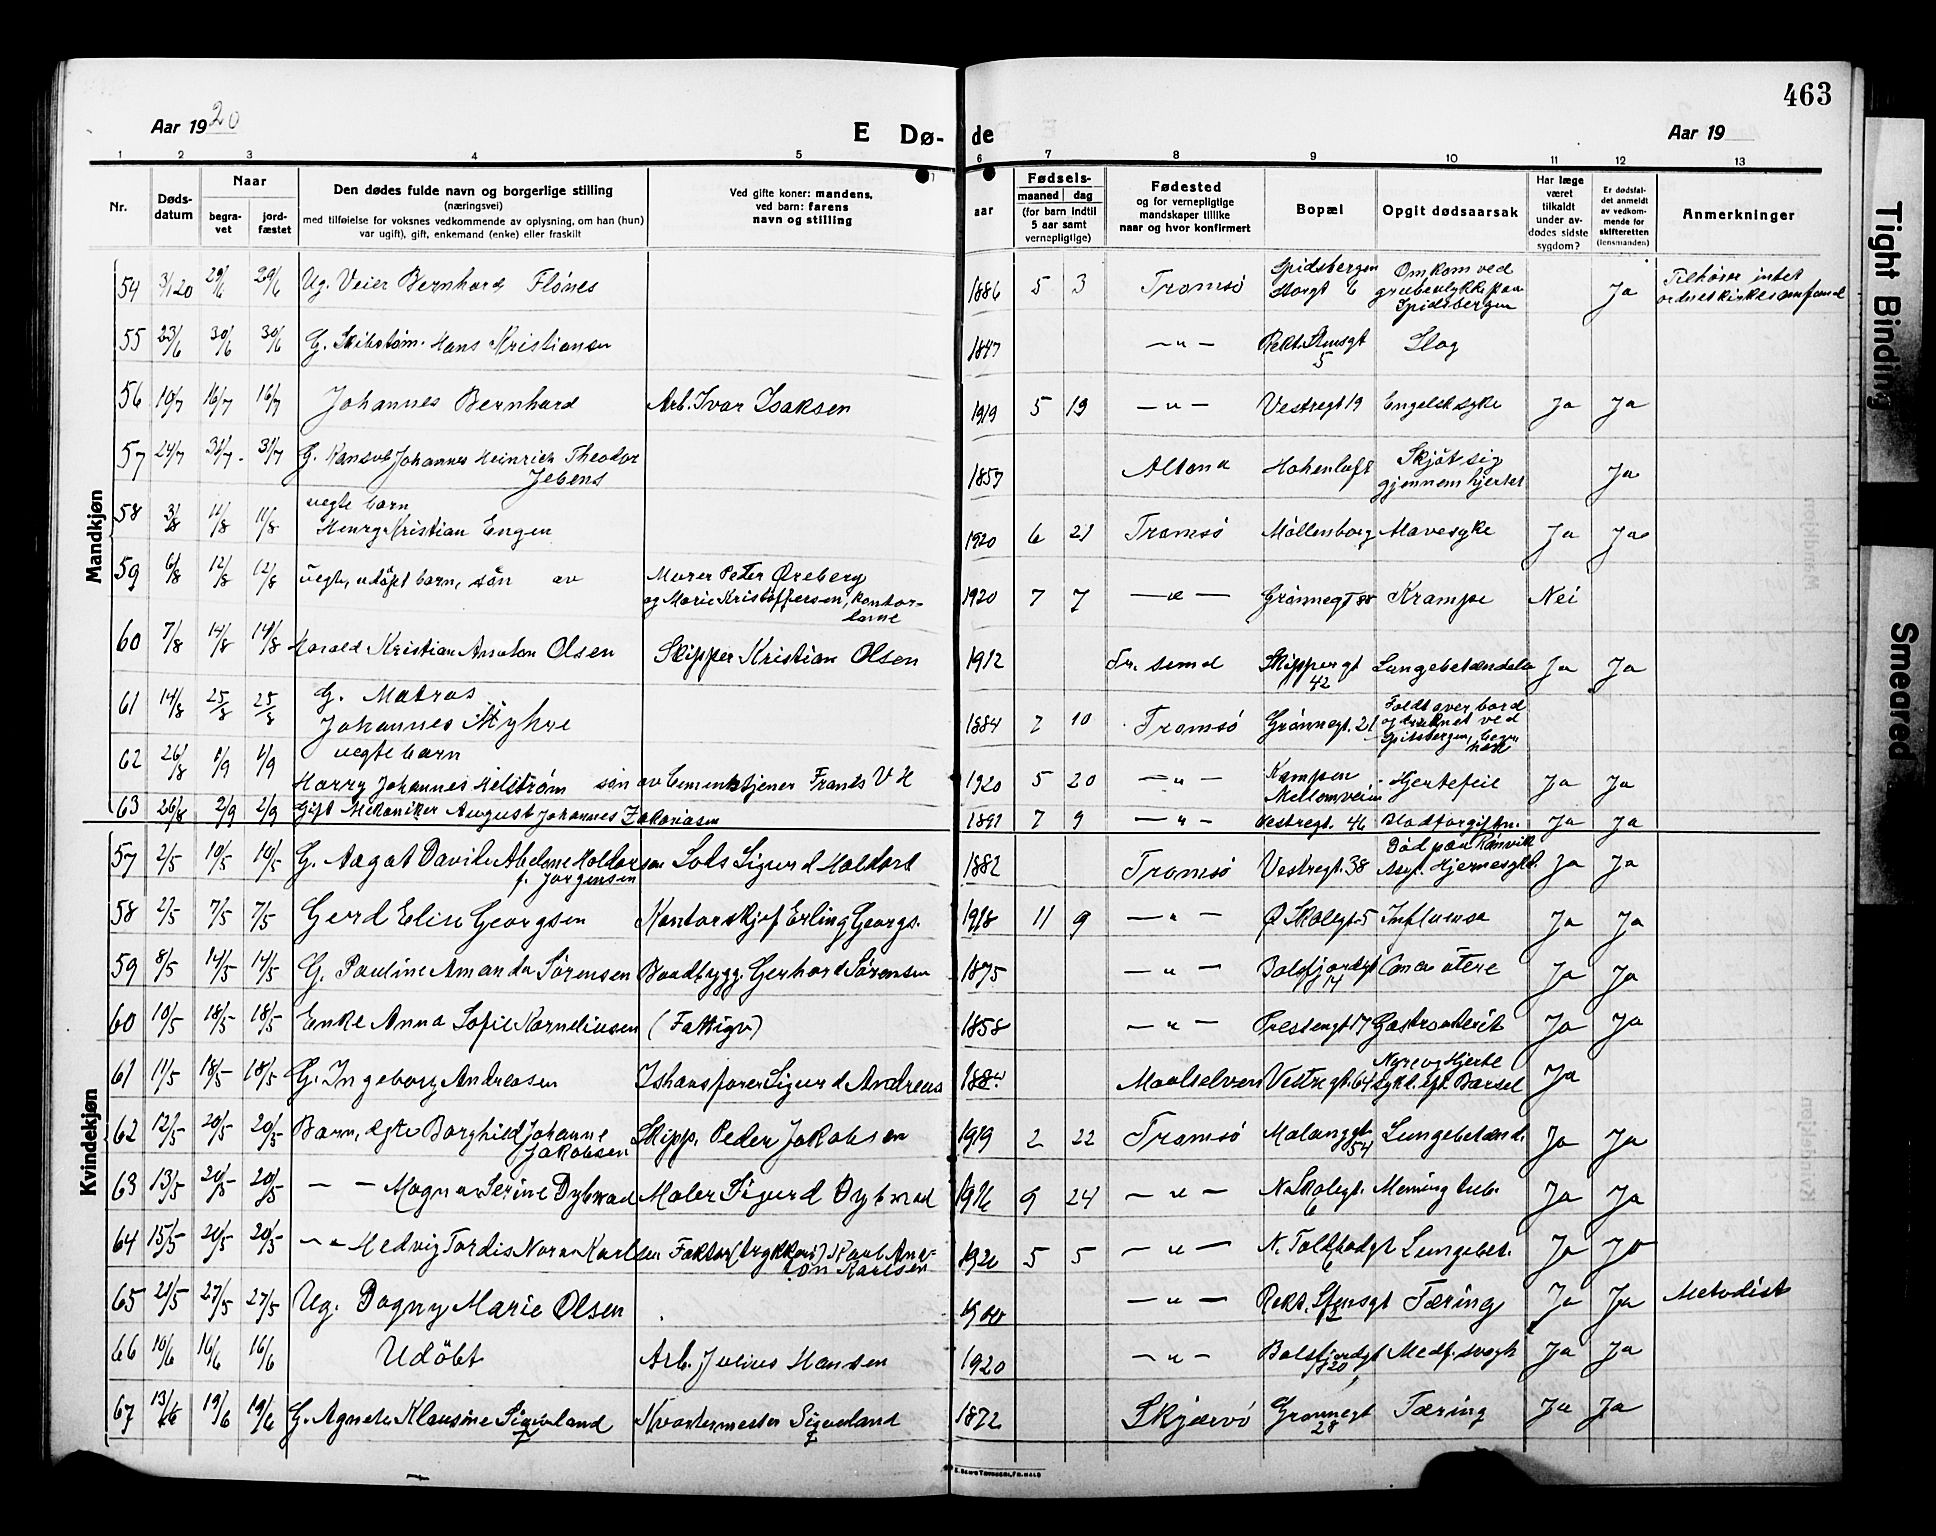 463
Aar 1920
E Dø-
de
Aar 19
1 2 3 4 5 6 7 8 9 10 11 12 13
Nr.
Døds-
datum
Naar
begra-
vet
jord-
fæstet
Den dødes fulde navn og borgerlige stilling
(næringsvei)
med tilføielse for voksnes vedkommende av oplysning, om han (hun)
var ugift), gift, enkemand (enke) eller fraskilt
Ved gifte koner: mandens,
ved barn: farens
navn og stilling
Fødsels-
aar
maaned dag
(for barn indtil
5 aar samt
vernepligtige)
Fødested
og for vernepligtige
mandskaper tillike
naar og hvor konfirmert
Bopæl
Opgit dødsaarsak
Har læge
været
tilkaldt
under av-
dødes sidste
sygdom?
Er dødsfal-
det anmeldt
av vedkom-
mende for
skifteretten
(lensmanden)
Anmerkninger
Mandkjøn
54 3/1 20 29/6 29/6 Ug. Veier Bernhard Flönes 1886 5 3 Tromsö Spidsbergen Storgt 6 Omkom ved grubeulykke paa Spidsbergen Ja Tilhører intet
55 23/6 30/6 30/6 G. Hans Kristiansen 1847 — " — Rekt. Stensgt 5 Slag
56 10/7 16/7 16/7 Johannes Bernhard Arb. Ivar Isaksen 1919 5 19 — " — Vestregt 19 Engelsk syke Ja Ja
57 24/7 31/7 31/7 G. Johannes Heinrich Theodor Jebens 1857 Altona Hohenluft Skjöt sig gjennem hjertet Ja
58 3/8 11/8 11/8 ægte barn Henry Kristian Engen 1920 6 21 Tromsö Möllenborg Mavesyke Ja Ja
59 6/8 12/8 12/8 uegte, udöpt barn, sön av Murer Peter Öreberg og Marie Kristoffersen, Kontordame 1920 7 7 — " — Grönnegt 88 Krampe Nei
60 7/8 14/8 14/8 Harald Kristian Olsen Skipper Kristian Olsen 1912 Tr. sund Skippergt 42 Lungebetændelse Ja Ja
61 14/8 25/8 25/8 G. Matros Johannes Myhre 1884 7 10 Tromsö Grönnegt. 21 Faldt over bord og druknet ved Spitsbergen,
62 26/8 1/9 1/9 ægte barn Harry Johannes Helström sön av Frants V H 1920 5 20 — " — Kampen Mellomveien Hjertefeil Ja Ja
63 26/8 2/9 2/9 Gift Mekaniker August Johannes Zakariasen 1891 7 9 — " — Vestregt. 46 Blodforgiftn. Ja Ja
Kvindekjøn
57 2/5 10/5 10/5 G. Aagot Davile Holdorsen f. Jørgensen Lods Sigurd Holdorf 1882 Tromsö Vestregt. 38 Död paa Rönvik Asyl. Hjernesykd. Ja Ja
58 2/5 7/5 7/5 Gerd Elise Georgsen Kontorskjef Erling Georgs. 1918 11 9 — " — Ö Skolegt. 5 Influensa Ja Ja
59 8/5 14/5 14/5 G. Pauline Amanda Sörensen Baadbygg. Gerhard Sörensen 1875 — " — Balsfjordgt 14 Cancer utere Ja Ja
60 10/5 18/5 18/5 Enke Anna Sofie Korneliusen (Fattigv) 1858 — " — Prestengt 17 Gastroenterit Ja Ja
61 11/5 18/5 18/5 G. Ingeborg Andreasen Ishavsfarer Sigurd Andreas 1884 Maalselven Vestregt. 64 Nyre og Hjerte sykd. eft. Barsel Ja
62 12/5 20/5 20/5 Barn, ægte Borghild Johanne Jakobsen Skipp. Peder Jakobsen 1919 2 22 Tromsö Malanggt 54 Lungebetænd. Ja Ja
63 13/5 20/5 20/5 — — Magna Serine Dybwad Maler Sigurd Dybwad 1916 9 24 — " — N. Skolegt. 6 Mening tub. Ja Ja
64 15/5 20/5 20/5 — " Hedvig Tordis Nora Karlsen Faktor (trykkeri) Paul Anaton Karlsen 1920 5 5 — " — N. Toldbodgt Lungebet. Ja Ja
65 21/5 27/5 27/5 Ug. Dagny Marie Olsen 1900 — " — Rekt. Stensgt 2 Tæring Ja Ja Metodist
66 10/6 16/6 16/6 Udöbt Arb. Julius Hansen 1920 — " — Balsfjordgt 20 Medf. svagh Ja Ja
67 13/6 19/6 19/6 G. Agnete Klausine Sigverland Kvartermester Sigverland 1872 Skjærvö Grönnegt 28 Tæring Ja Ja
Tight Binding
Smeared